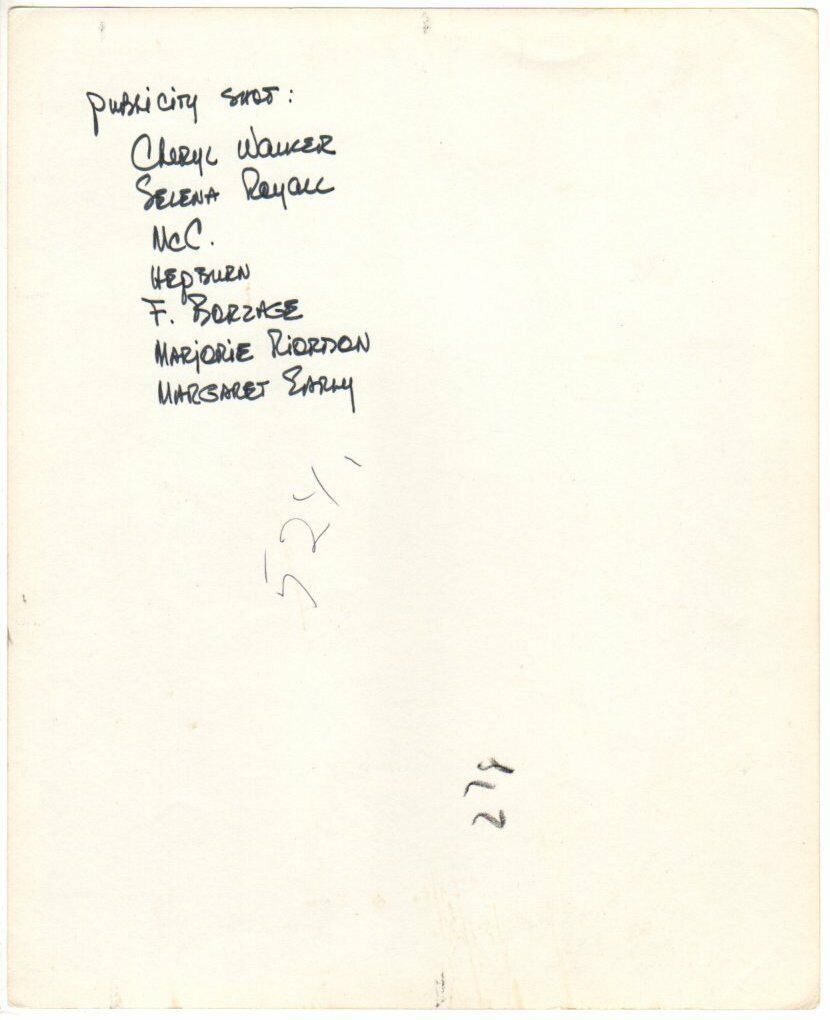 Publicity Shot:
Cheryl Walker
Selena Royall
McC.
Hepburn
F. Borzage
Marjorie Riordon
Margaret Early
524,
278